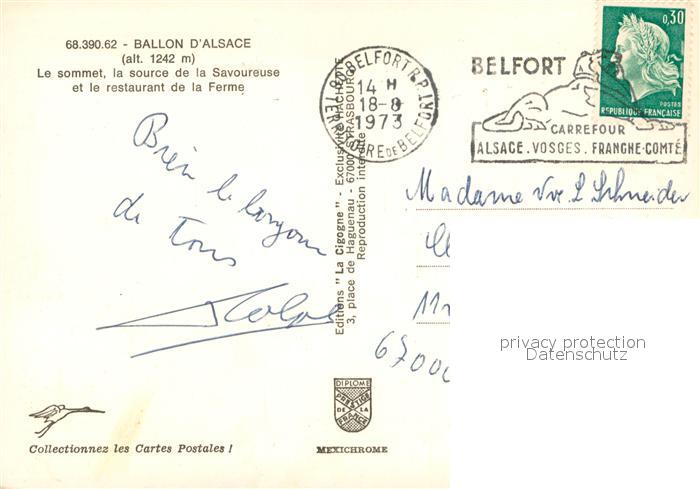 68.390.62 - BALLON D'ALSACE
(alt. 1242 m)
Le sommet, la source de la Savoureuse
et le restaurant de la Ferme
Bien le bonjour
de Tous
Editions "La Cigogne" - Exclusivité HACHETTE
3, place de Haguenau - 67000 STRASBOURG
Reproduction interdite
BELFORT R.P.
14 H
18-8
1973
TERRITOIRE DE BELFORT
BELFORT
CARREFOUR
ALSACE . VOSGES . FRANCHE-COMTÉ
0,30
POSTES
REPUBLIQUE FRANÇAISE
Madame Vve L Schneider
11
67000
privacy protection
Datenschutz
DIPLOME
PRESTIGE
DE LA
FRANCE
Collectionnez les Cartes Postales !
MEXICHROME